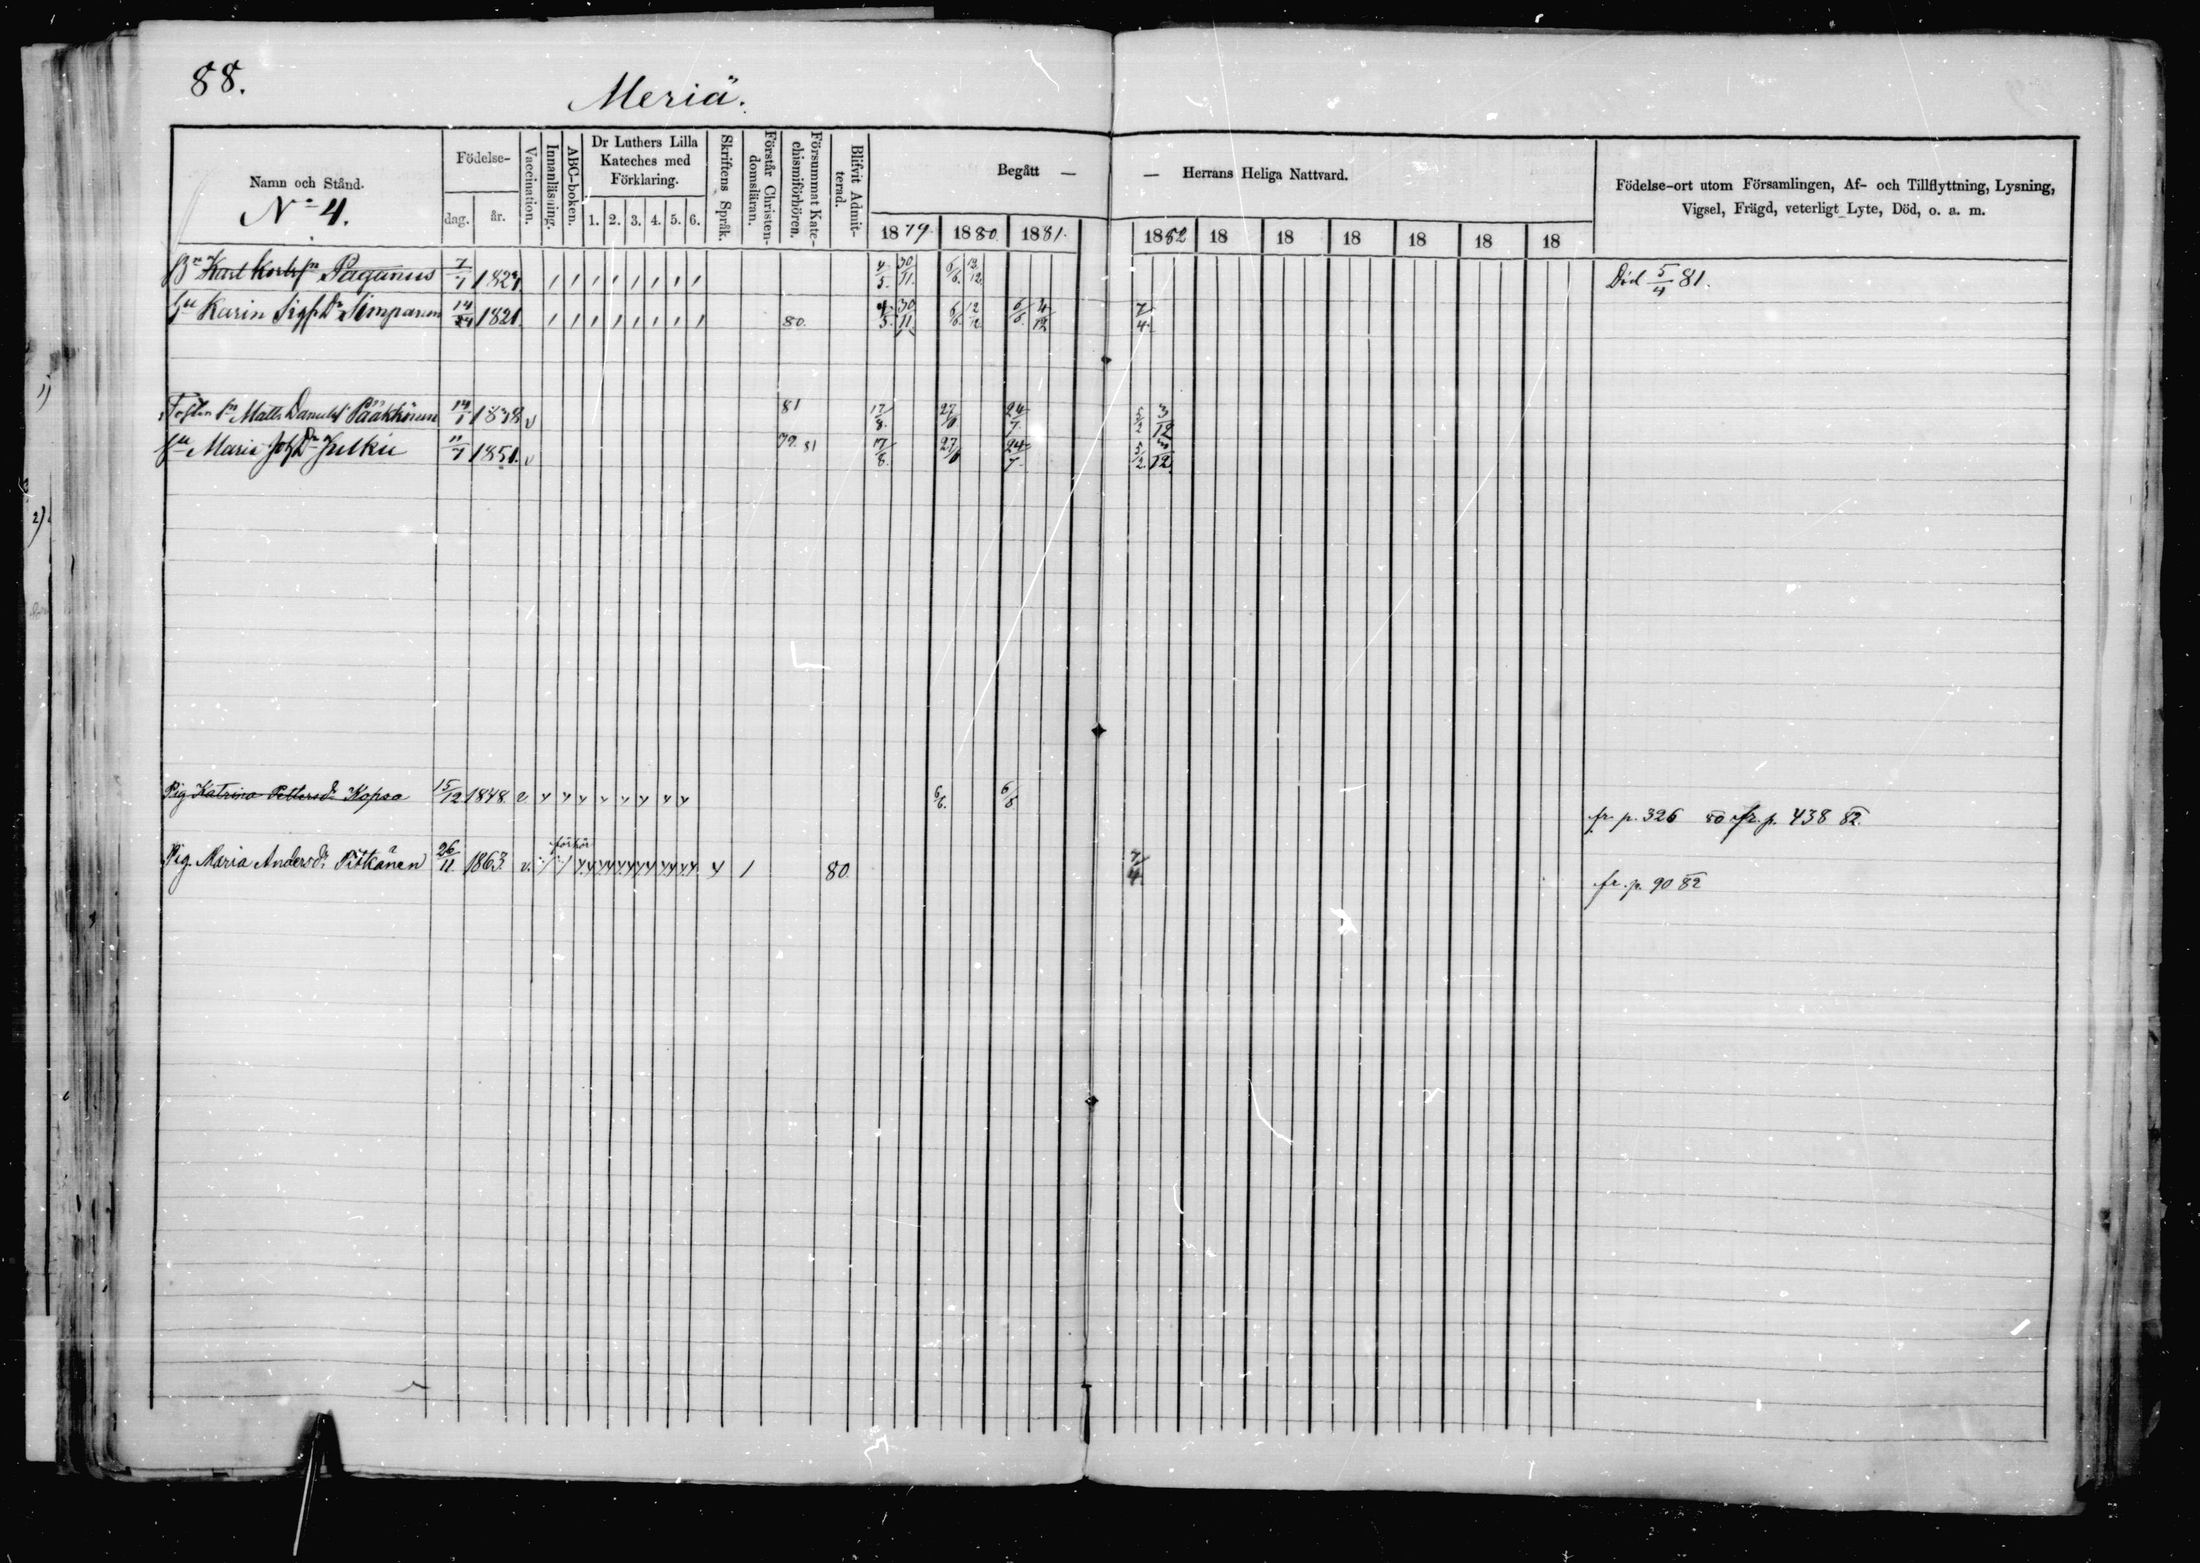 88.
Meriä.
Namn och Stånd.
No 4.
Födelse-
dag. år.
Vaccination.
Innanläsning.
ABC-boken.
Dr Luthers Lilla
Kateches med
Förklaring.
1. 2. 3. 4. 5. 6.
Skriftens Språk.
Förstår Christen-
domsläran.
Försummat Kate-
chismiförhören.
Blifvit Admit-
terad.
Begått — — Herrans Heliga Nattvard.
1879. 1880. 1881. 1882 18 18 18 18 18 18
Födelse-ort utom Församlingen, Af- och Tillflyttning, Lysning,
Vigsel, Frägd, veterligt Lyte, Död, o. a. m.
Karl Paganus 7/1 4/5. 30/11. 6/6. 12/12. Död 5/4 81.
Karin Simpanen 1821. 80. 4/5. 30/11. 6/6. 12/12 6/6. 4/12 7/4.
Matts Pääkkönen 14/1 v 81 17/8. 27/6 24/7. 5/2 3/12
Maria Julku 11/1 1851. v 79. 81 17/8. 27/6 24/7. 5/2. 3/12.
Pig Katrina Pettersdr Kopsa 15/12 1848. v. 6/6. 6/6 fr. p. 326 fr. p. 438 82.
förhör
Pig. Maria Andersdr Pitkänen 26/11. 1863. v. 4 1 80 7/4. fr. p. 90 82
1)
2)